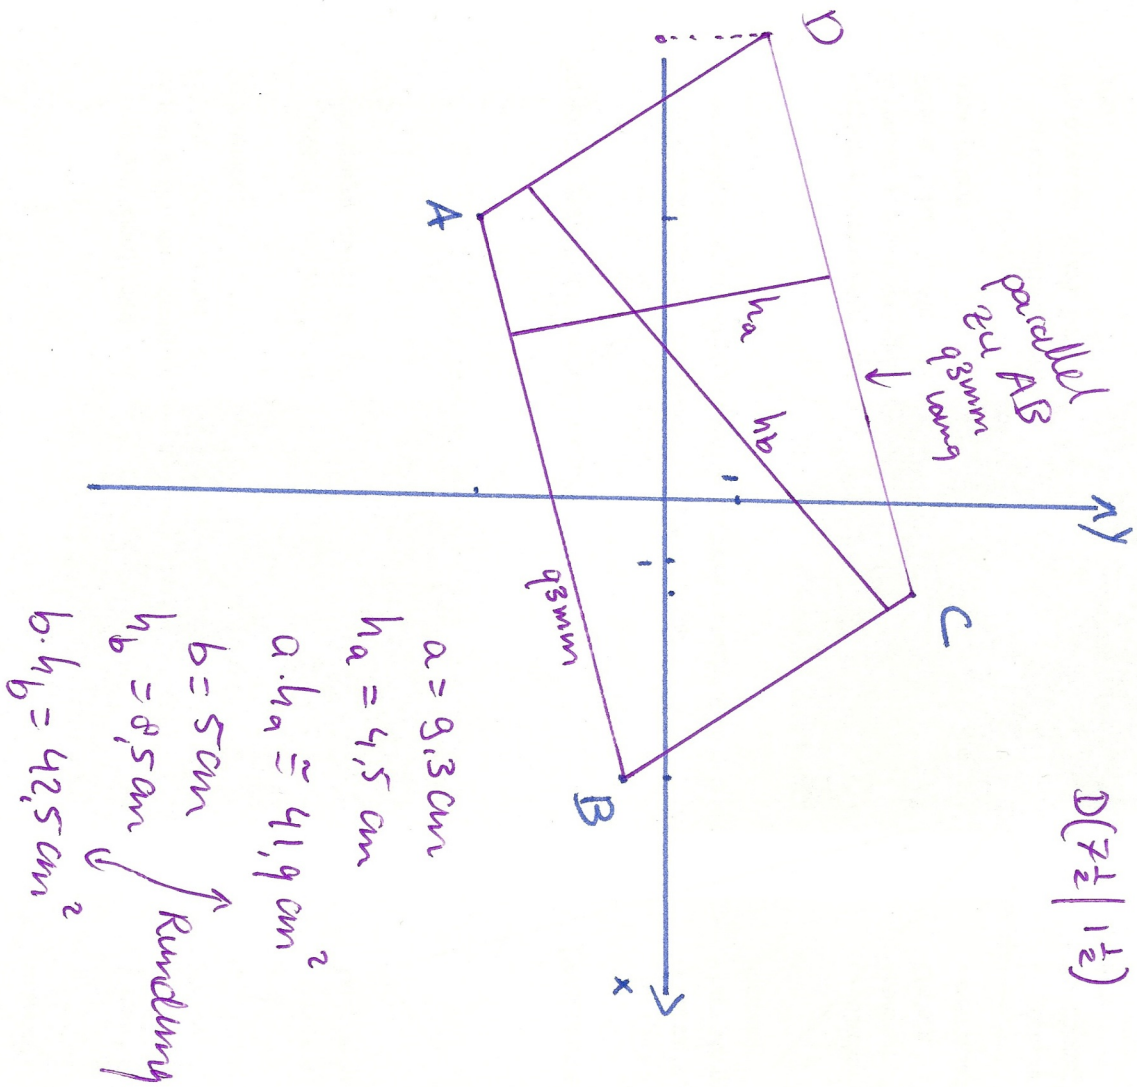 D
A
parallel
zu AB
93mm
lang
ha
hb
y
C
93mm
B
x
D(7½|1½)
a = 9,3 cm
ha = 4,5 cm
a·ha ≅ 41,9 cm²
b = 5 cm
hb = 8,5 cm
b·hb = 42,5 cm²
Rundung